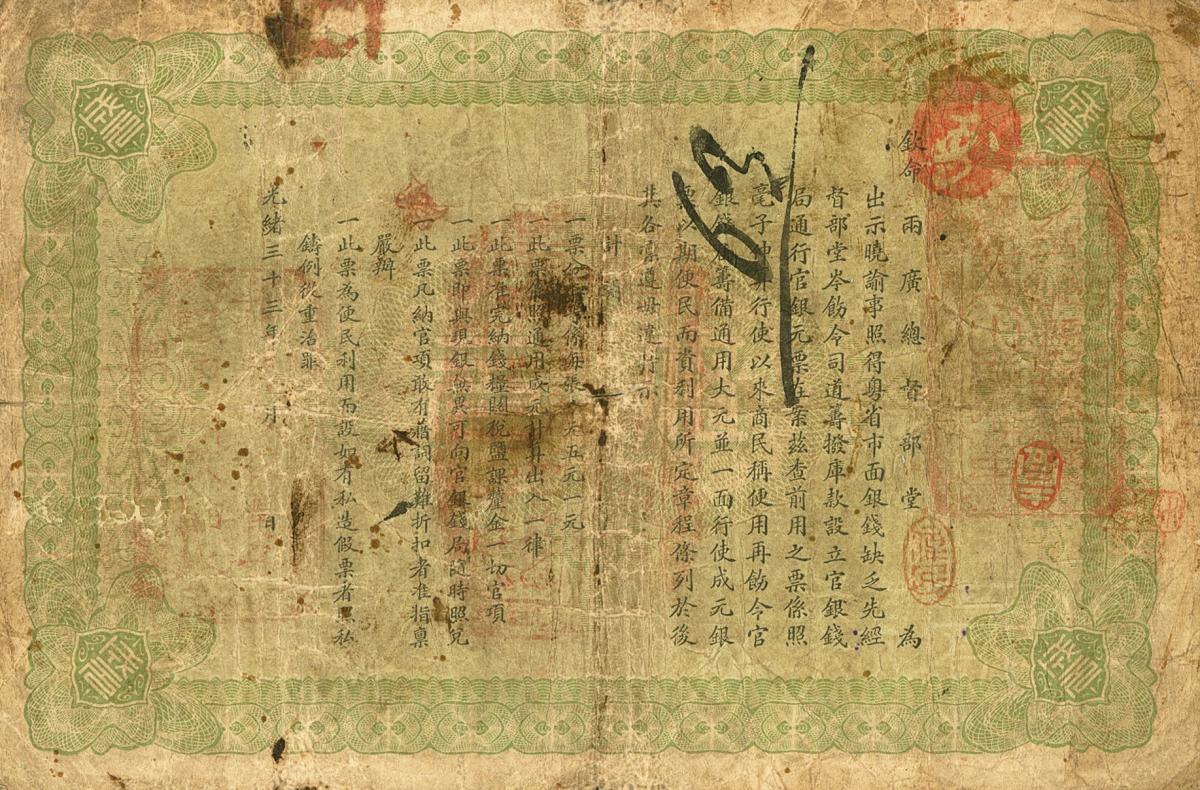 欽命兩廣總督部堂 為
出示曉諭事照得粵省市面銀錢缺乏先經
督部堂岑飭令司道籌撥庫款設立官銀錢
局通行官銀元票在案茲查前用之票係照
毫子 算行使以來商民稱便用再飭令官
銀錢 籌備通用大元並一面行使成元銀
票以期便民而資利用所定章程條列於後
其各凜遵毋違特示
計
一票 係每張 元五元一元
一此票 照通用成元計算出入一律
一此票准完納錢糧關稅鹽課釐金一切官項
一此票即與現銀無異可向官銀錢局隨時照兌
一此票凡納官項敢有藉詞留難折扣者准指稟
嚴辦
一此票為便民利用而設如有私造假票者照私
鑄例從重治罪
光緒三十三年 月 日